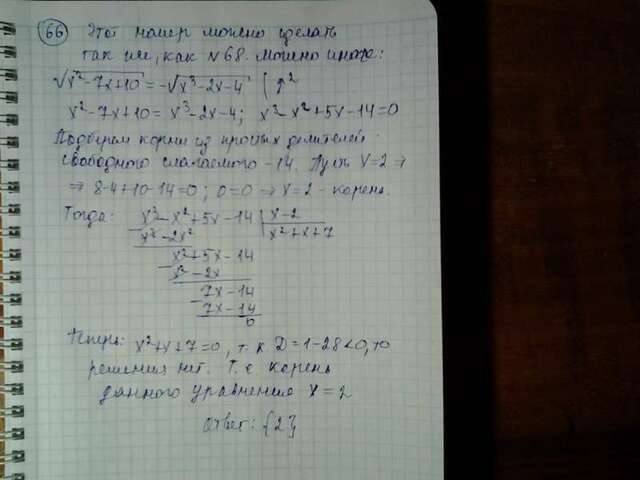 66 Этот номер можно сделать
так же, как №68. Можно иначе:
√x²-7x+10 = -√x³-2x-4 | ↑²
x²-7x+10 = x³-2x-4; x³-x²+5x-14=0
Подберем корни из простых делителей
свободного слагаемого -14. Пусть x=2 ⇒
⇒ 8-4+10-14=0; 0=0 ⇒ x=2 - корень.
Тогда: x³-x²+5x-14 | x-2
x³-2x² | x²+x+7
x²+5x-14
x²-2x
7x-14
7x-14
0
Теперь: x²+x+7=0, т.к D=1-28<0, то
решения нет. Т.е корень
данного уравнения x=2
Ответ: {2}